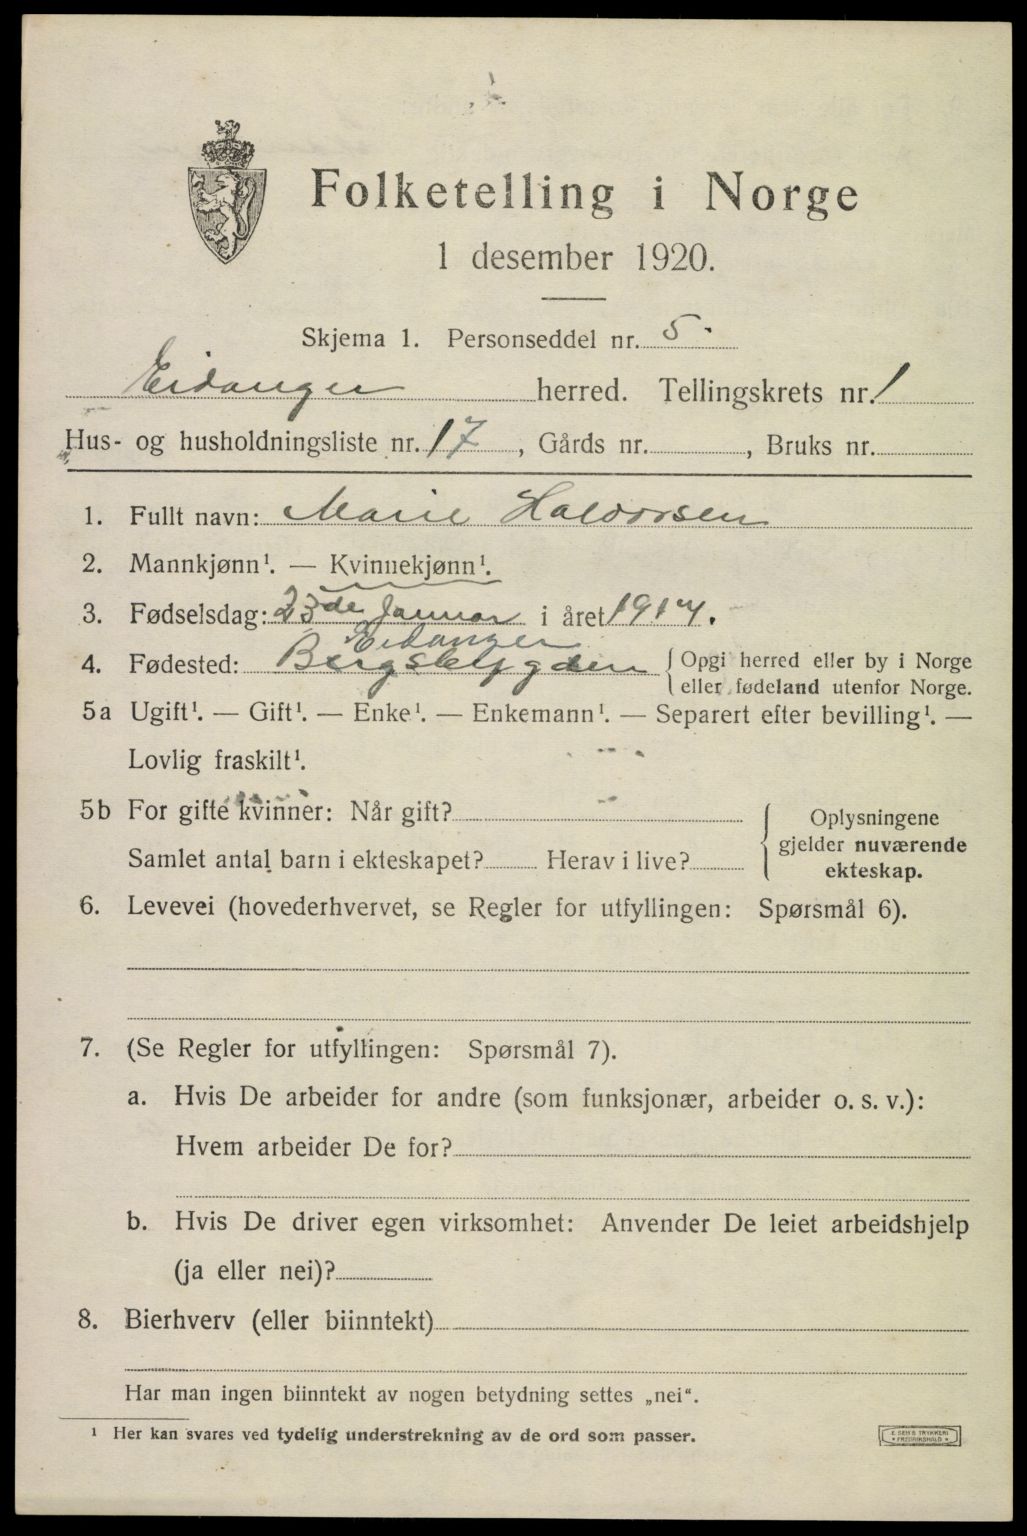 Folketelling i Norge
1 desember 1920.
Skjema 1. Personseddel nr. 5
Eidanger herred. Tellingskrets nr. 1
Hus- og husholdningsliste nr. 17, Gårds nr. , Bruks nr.
1. Fullt navn: Marie Halvorsen
2. Mannkjønn¹. — Kvinnekjønn¹.
3. Fødselsdag: 23de Januar i året 1917.
Eidanger
4. Fødested: Bergsbygden { Opgi herred eller by i Norge
eller fødeland utenfor Norge.
5a Ugift¹. — Gift¹. — Enke¹. — Enkemann¹. — Separert efter bevilling¹. —
Lovlig fraskilt¹.
5b For gifte kvinner: Når gift?
Samlet antal barn i ekteskapet? Herav i live?
Oplysningene
gjelder nuværende
ekteskap.
6. Levevei (hovederhvervet, se Regler for utfyllingen: Spørsmål 6).
7. (Se Regler for utfyllingen: Spørsmål 7).
a. Hvis De arbeider for andre (som funksjonær, arbeider o. s. v.):
Hvem arbeider De for?
b. Hvis De driver egen virksomhet: Anvender De leiet arbeidshjelp
(ja eller nei)?
8. Bierhverv (eller biinntekt)
Har man ingen biinntekt av nogen betydning settes „nei“.
¹ Her kan svares ved tydelig understrekning av de ord som passer.
E. SEM'S TRYKKERI
FREDRIKSHALD